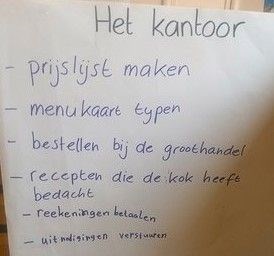 Het kantoor
- prijslijst maken
- menukaart typen
- bestellen bij de groothandel
- recepten die de kok heeft
bedacht
- reekeningen betaalen
- uitnodigingen verstuuren